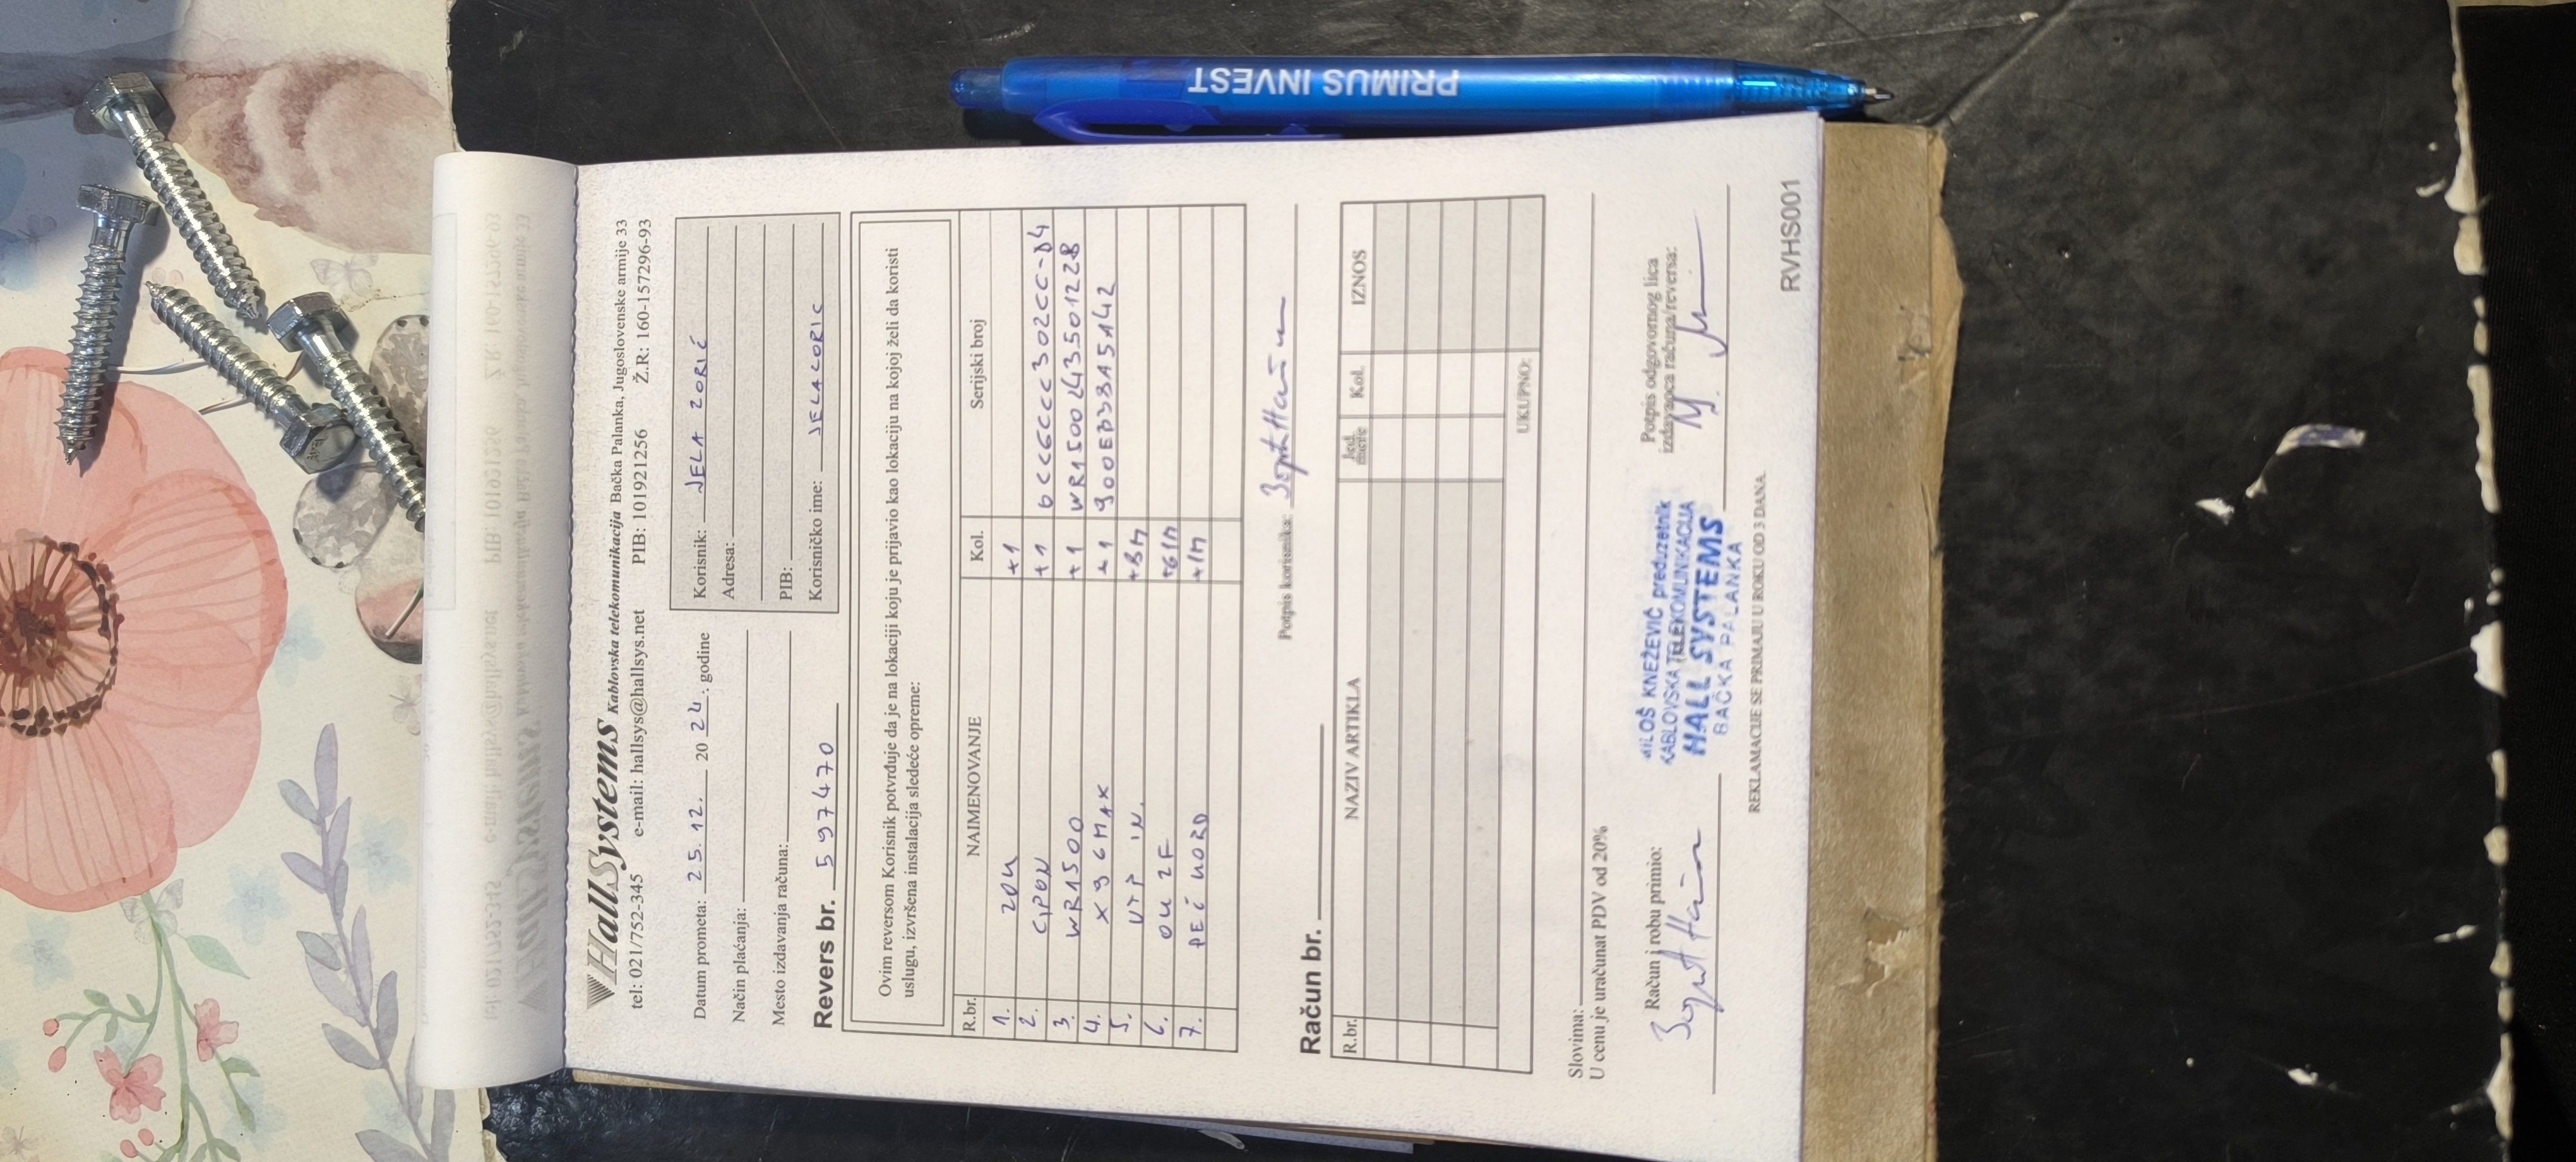 HallSystems Kablovska telekomunikacija Bačka Palanka, Jugoslovenske armije 33
tel: 021/752-345 e-mail: hallsys@hallsys.net PIB: 101921256 Ž.R: 160-157296-93
Datum prometa: 25.12. 2024. godine
Način plaćanja:
Mesto izdavanja računa:
Revers br. 597470
Korisnik: JELA ZORIĆ
Adresa:
PIB:
Korisničko ime: JELACORIC
Ovim reversom Korisnik potvrđuje da je na lokaciji koju je prijavio kao lokaciju na kojoj želi da koristi
uslugu, izvršena instalacija sledeće opreme:
R.br. NAIMENOVANJE Kol. Serijski broj
1. ZOU +1
2. GPON +1
3. WR1500 +1 WR1500L43501228
4. +1
5. UTP IN. +8M
6. OU 2F
7.
Potpis korisnika:
Račun br.
R.br. NAZIV ARTIKLA Jed. mere Kol. IZNOS
UKUPNO:
Slovima:
U cenu je uračunat PDV od 20%
Račun i robu primio:
MILOŠ KNEŽEVIĆ preduzetnik
KABLOVSKA TELEKOMUNIKACIJA
HALL SYSTEMS
BAČKA PALANKA
Potpis odgovornog lica
izdavaoca računa/reversa:
REKLAMACIJE SE PRIMAJU U ROKU OD 3 DANA
RVHS001
PRIMUS INVEST